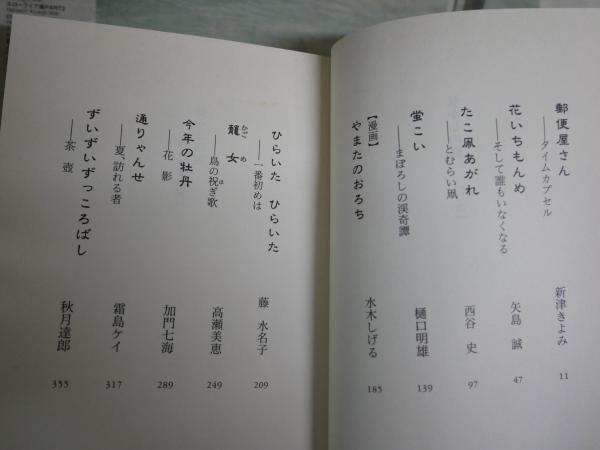 郵便屋さん
――タイムカプセル
新津きよみ
11
花いちもんめ
――そして誰もいなくなる
矢島 誠
47
たこ凧あがれ
――とむらい凧
西谷 史
97
蛍こい
――まぼろしの渓奇譚
樋口明雄
139
【漫画】
やまたのおろち
水木しげる
185
ひらいた ひらいた
――一番初めは
藤 水名子
209
籠女
かごめ
――鳥の祝ぎ歌
ほ
高瀬美恵
249
今年の牡丹
――花 影
加門七海
289
通りゃんせ
――夏、訪れる者
霜島ケイ
317
ずいずいずっころばし
――茶 壺
秋月達郎
355